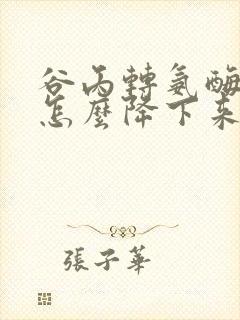 谷丙轉氨酶
怎麼降下來
張子華